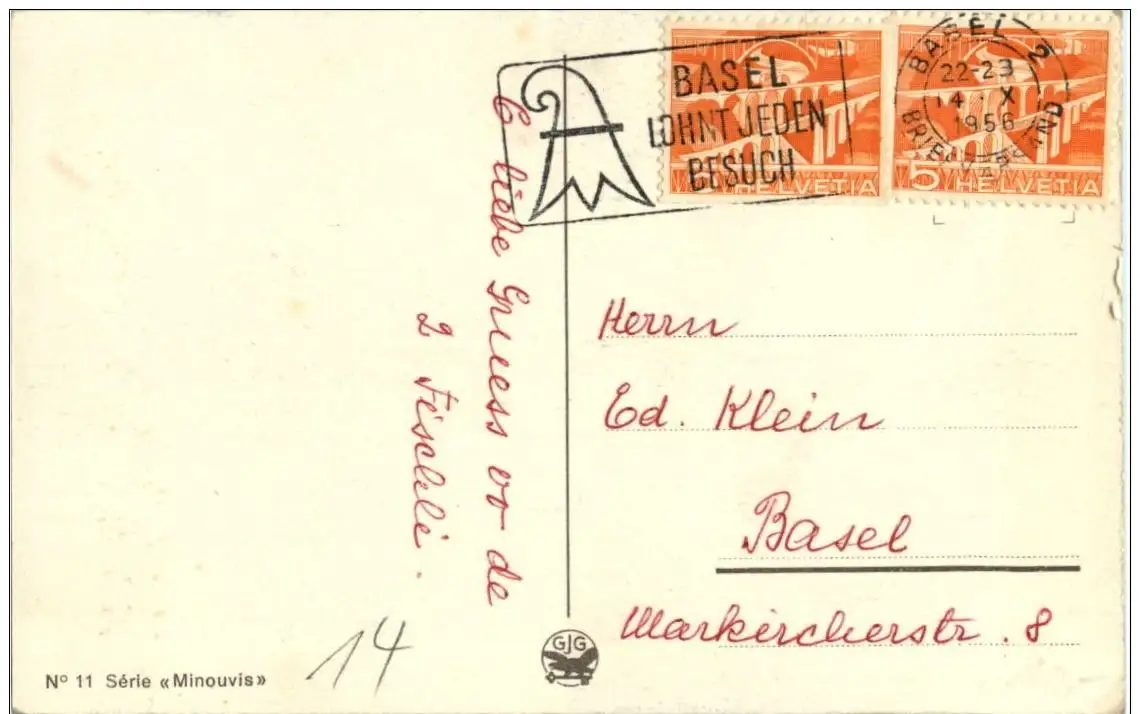 BASEL
LOHNT JEDEN
BESUCH
BASEL 2
22-23
14. X
1956
BRIEFVERSAND
5 HELVETIA
5 HELVETIA
E liebe Gruess vo de
2 Fischli.
Herrn
Ed. Klein
Basel
Markircherstr. 8
GJG
Nº 11 Série «Minouvis»
14